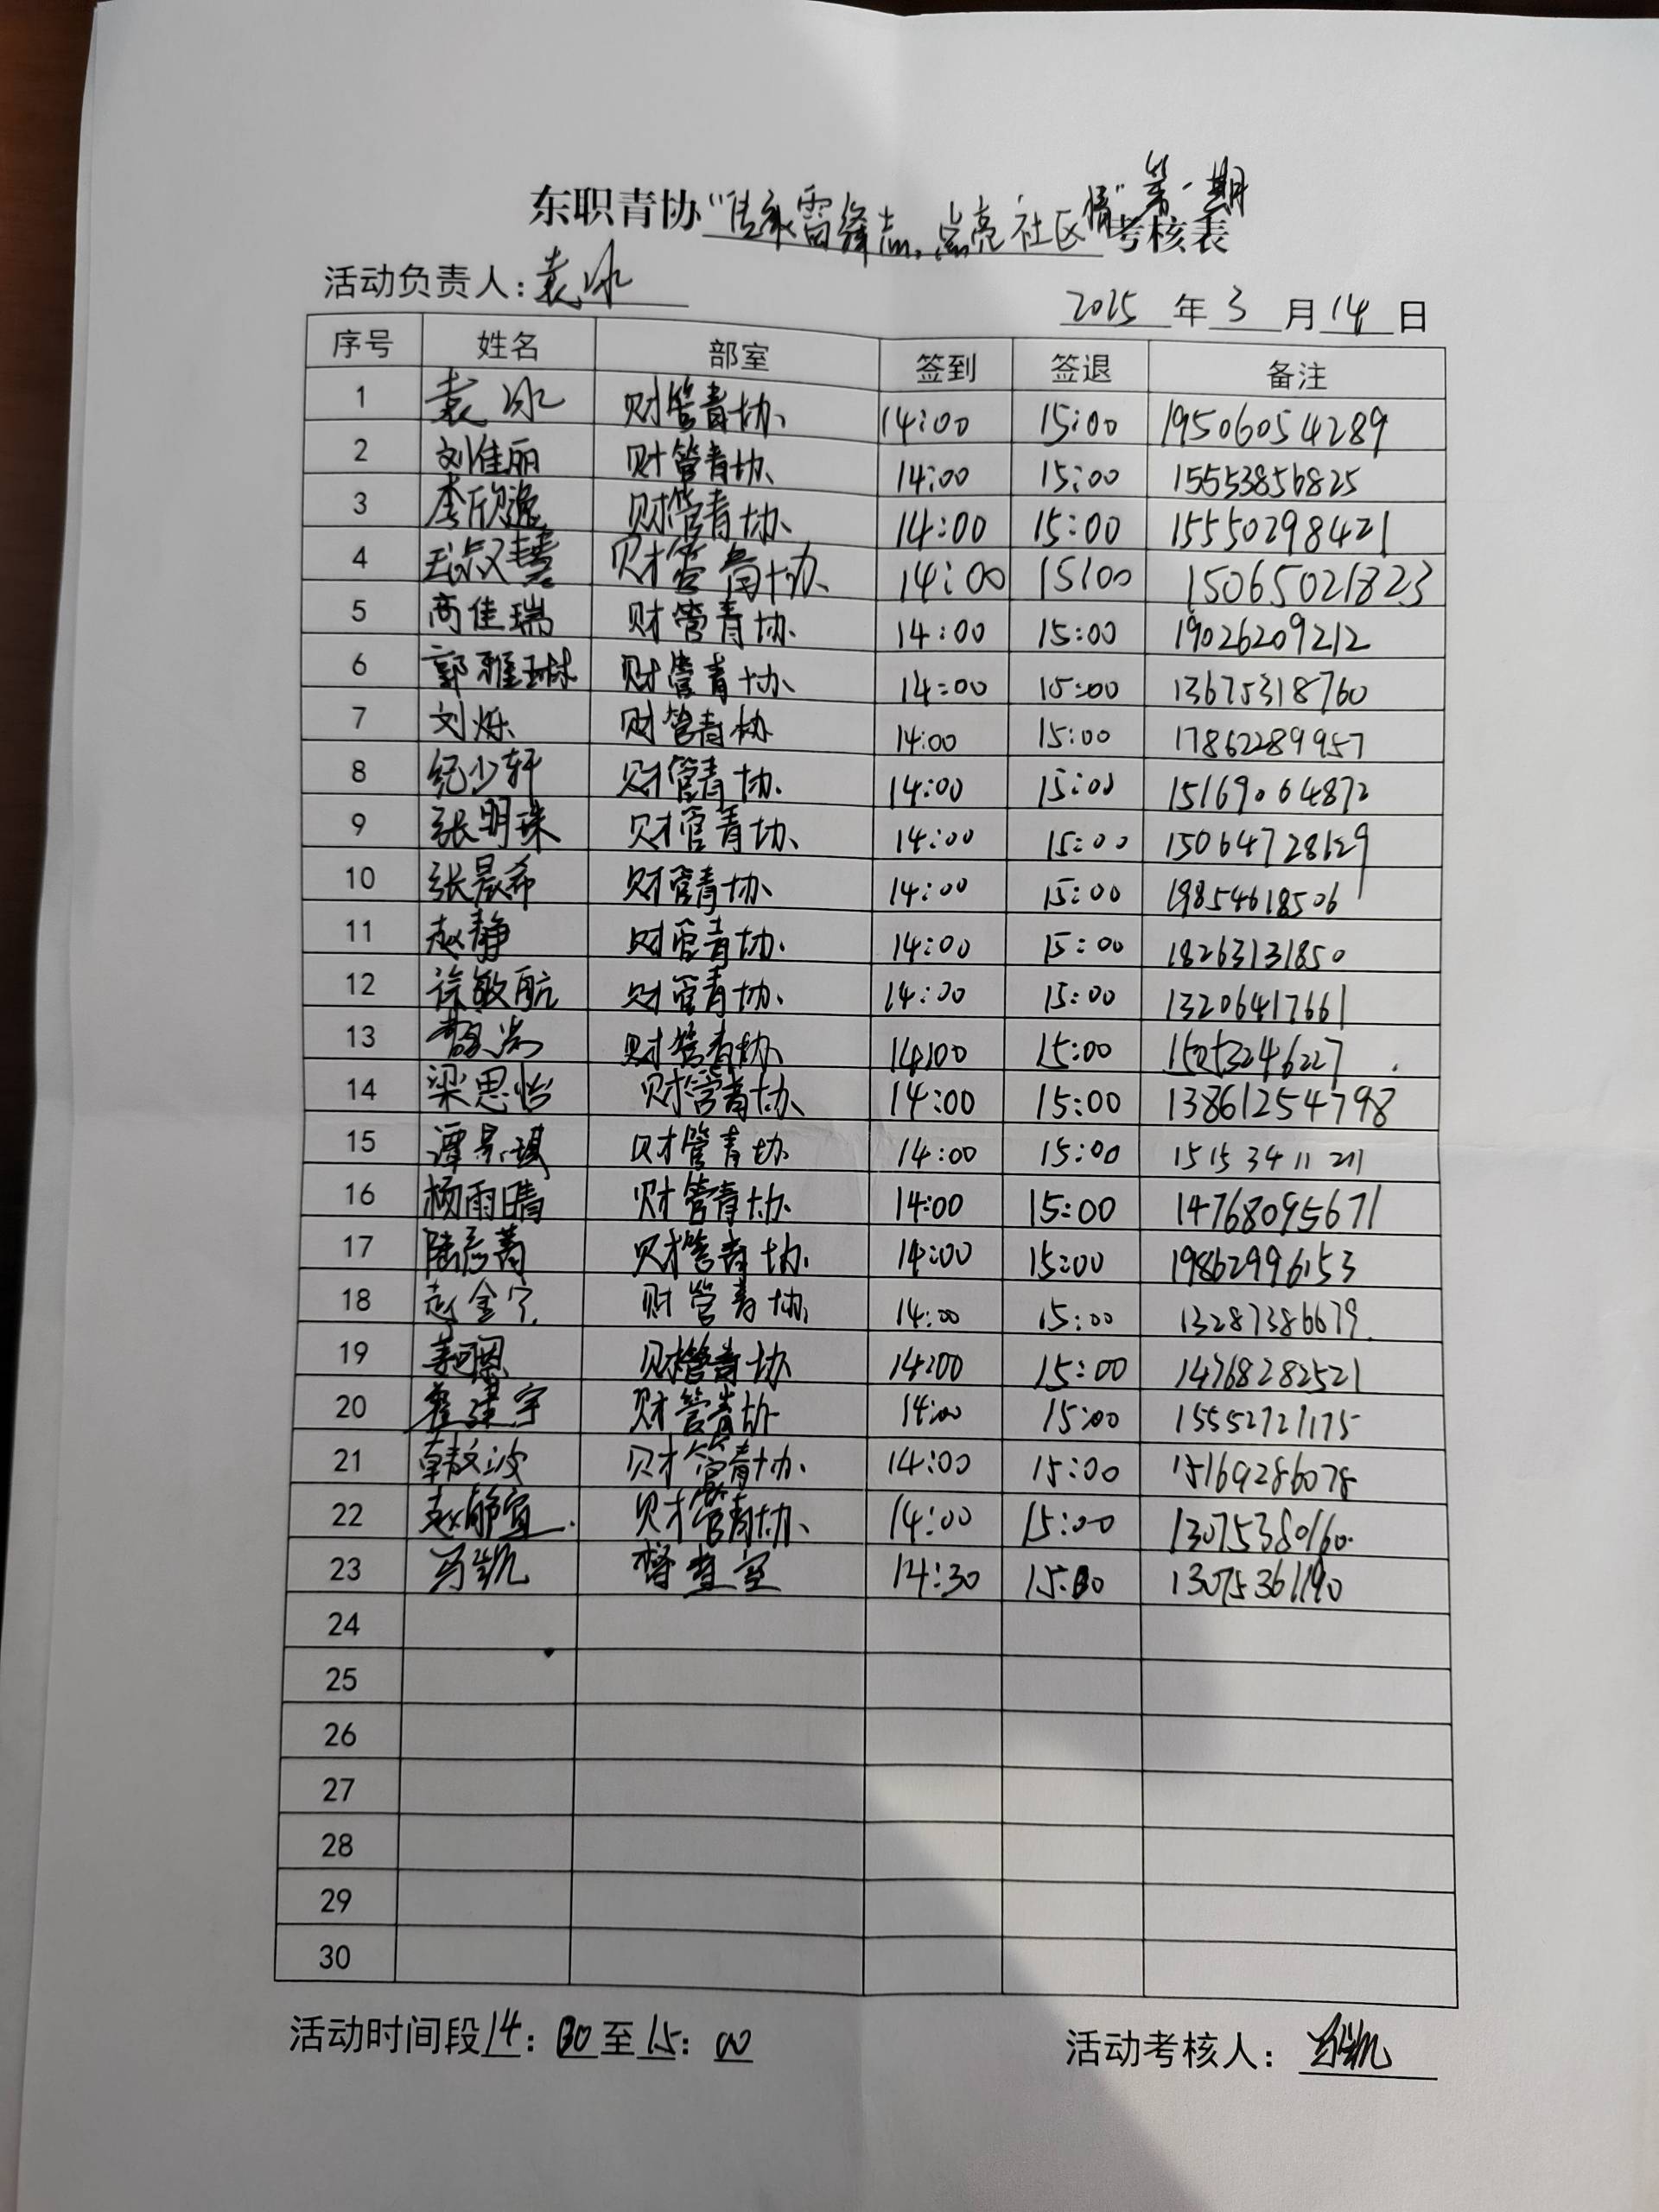 东职青协"传承雷锋志,点亮社区情"第一期考核表
活动负责人:袁冰
2025年3月14日
序号 姓名 部室 签到 签退 备注
1 袁冰 财管青协 14:00 15:00 19506054289
2 刘佳丽 财管青协 14:00 15:00 15553856825
3 李欣逸 财管青协 14:00 15:00 15550298421
4 王淑慧 财管青协 14:00 15:00 15065021823
5 商佳瑞 财管青协 14:00 15:00 19026209212
6 郭雅琳 财管青协 14:00 15:00 13675318760
7 刘烁 财管青协 14:00 15:00 17862289957
8 纪少轩 财管青协 14:00 15:00 15169064872
9 张明珠 财管青协 14:00 15:00 15064728629
10 张晨希 财管青协 14:00 15:00 19854618506
11 赵静 财管青协 14:00 15:00 18263131850
12 徐敏航 财管青协 14:00 15:00 13206417661
13 财管青协 14:00 15:00
14 梁思怡 财管青协 14:00 15:00 13861254798
15 谭景琪 财管青协 14:00 15:00
16 杨雨晴 财管青协 14:00 15:00 14768095671
17 陆彦菁 财管青协 14:00 15:00 19862996153
18 赵金宁 财管青协 14:00 15:00 13287386679
19 姜珊恩 财管青协 14:00 15:00 14768282521
20 财管青协 14:00 15:00 15552721175
21 韩文波 财管青协 14:00 15:00 15169286078
22 赵静宜 财管青协 14:00 15:00 13075380160
23 马凯 督查室 14:30 15:00 13075361190
24
25
26
27
28
29
30
活动时间段14:00至15:00
活动考核人:马凯